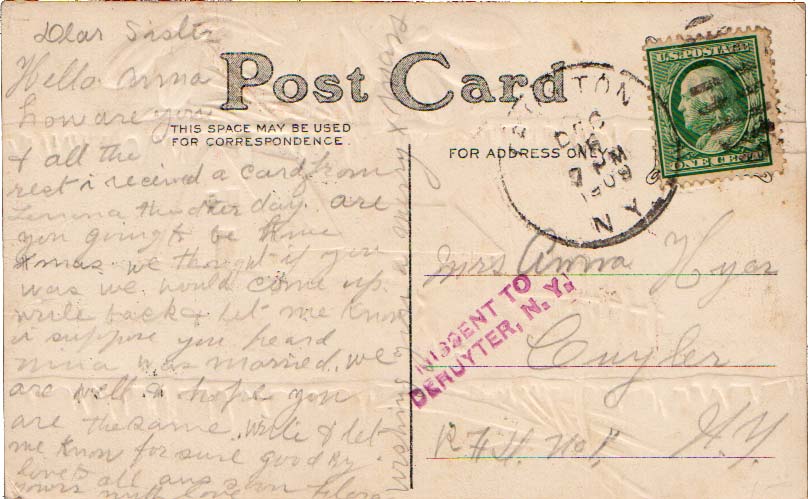 Dear Sister
Hello Anna
how are you
& all the
rest i received a card from
the other day. are
you going to be home
Xmas. we thought if you
was we would come up.
write back & let me know
i suppose you heard
nina was married. we
are well & hope you
are the same. write & let
me know for sure good by.
love to all
yours with love Flora
wishing you a merry Xmas
Post Card
THIS SPACE MAY BE USED
FOR CORRESPONDENCE.
FOR ADDRESS ONLY
DEC
7 PM
1909
N Y
U.S. POSTAGE
ONE CENT
MISSENT TO
DERUYTER, N. Y.
Mrs Anna Hyar
Cuyler
N.Y.